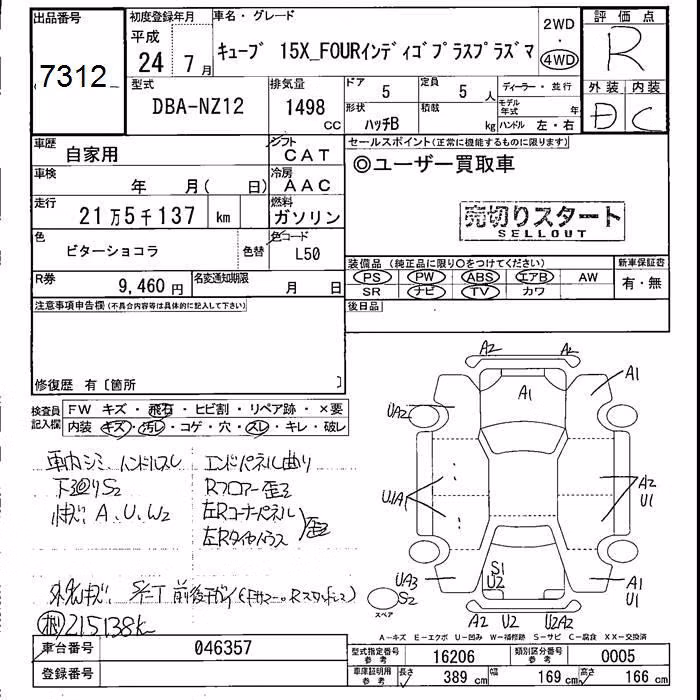 出品番号 初度登録年月 車名・グレード 2WD 評価点
平成 ・ R
7312 24 7月 キューブ 15X_FOURインディゴプラスプラズマ 4WD
型式 排気量 ドア 5 定員 5 人 ディーラー・並行 外装 内装
DBA-NZ12 1498 cc 形状 ハッチB 積載 kg モデル年式 年 D C
ハンドル 左・右
車歴 自家用 シフト CAT セールスポイント(正常に機能するものに限ります)
車検 年 月( 日) 冷房 AAC ◎ユーザー買取車
走行 21万5千137 km 燃料 ガソリン 売切りスタート
SELLOUT
色 ビターショコラ 色替 色コード L50
装備品(純正品に限り○をつけてください) 新車保証書
R券 9,460円 名変通知期限 月 日 PS PW ABS エアB AW 有・無
SR ナビ TV カワ
注意事項申告欄(不具合内容等は具体的に記入して下さい) 後日品
修復歴 有〔箇所 〕
検査員記入欄 FW キズ・飛石・ヒビ割・リペア跡・×要
内装 キズ・汚レ・コゲ・穴・スレ・キレ・破レ
車内シミ ハンドルスレ エンドパネル曲り
下回りS2 Rフロアー歪
A、U、W2 左Rコーナーパネル 歪
左Rタイヤハウス
215138k
A2 A2
A1 A1
UA2
U1A1 A2
U1
S1
U2
UA3 A1
S2 U1
スペア
A2 U2 U2A2
A-キズ E-エクボ U-凹み W-補修跡 S-サビ C-腐食 XX-交換済
車台番号 046357 型式指定番号 参考 16206 類別区分番号 参考 0005
登録番号 車庫証明用 参考 長さ 389 cm 幅 169 cm 高さ 166 cm